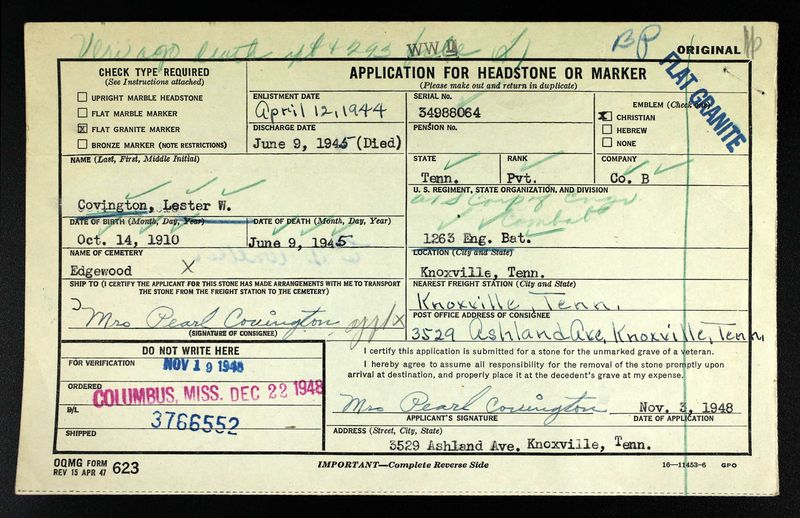 WW II
BP
ORIGINAL
FLAT GRANITE
CHECK TYPE REQUIRED
(See Instructions attached)
UPRIGHT MARBLE HEADSTONE
FLAT MARBLE MARKER
X FLAT GRANITE MARKER
BRONZE MARKER (NOTE RESTRICTIONS)
APPLICATION FOR HEADSTONE OR MARKER
(Please make out and return in duplicate)
ENLISTMENT DATE
April 12, 1944
DISCHARGE DATE
June 9, 1945 (Died)
SERIAL No.
34988064
PENSION No.
EMBLEM (Check one)
X CHRISTIAN
HEBREW
NONE
NAME (Last, First, Middle Initial)
Covington, Lester W.
STATE
Tenn.
RANK
Pvt.
COMPANY
Co. B
DATE OF BIRTH (Month, Day, Year)
Oct. 14, 1910
DATE OF DEATH (Month, Day, Year)
June 9, 1945
U. S. REGIMENT, STATE ORGANIZATION, AND DIVISION
Combat
1263 Eng. Bat.
NAME OF CEMETERY
Edgewood X
LOCATION (City and State)
Knoxville, Tenn.
SHIP TO (I CERTIFY THE APPLICANT FOR THIS STONE HAS MADE ARRANGEMENTS WITH ME TO TRANSPORT
THE STONE FROM THE FREIGHT STATION TO THE CEMETERY)
Mrs Pearl Covington
(SIGNATURE OF CONSIGNEE)
NEAREST FREIGHT STATION (City and State)
Knoxville, Tenn.
POST OFFICE ADDRESS OF CONSIGNEE
3529 Ashland Ave, Knoxville, Tenn,
DO NOT WRITE HERE
FOR VERIFICATION NOV 19 1948
ORDERED COLUMBUS, MISS. DEC 22 1948
B/L 3766552
SHIPPED
I certify this application is submitted for a stone for the unmarked grave of a veteran.
I hereby agree to assume all responsibility for the removal of the stone promptly upon
arrival at destination, and properly place it at the decedent's grave at my expense.
Mrs Pearl Covington Nov. 3, 1948
APPLICANT'S SIGNATURE DATE OF APPLICATION
ADDRESS (Street, City, State)
3529 Ashland Ave. Knoxville, Tenn.
OQMG FORM 623
REV 15 APR 47
IMPORTANT—Complete Reverse Side
16—11453-6 GPO